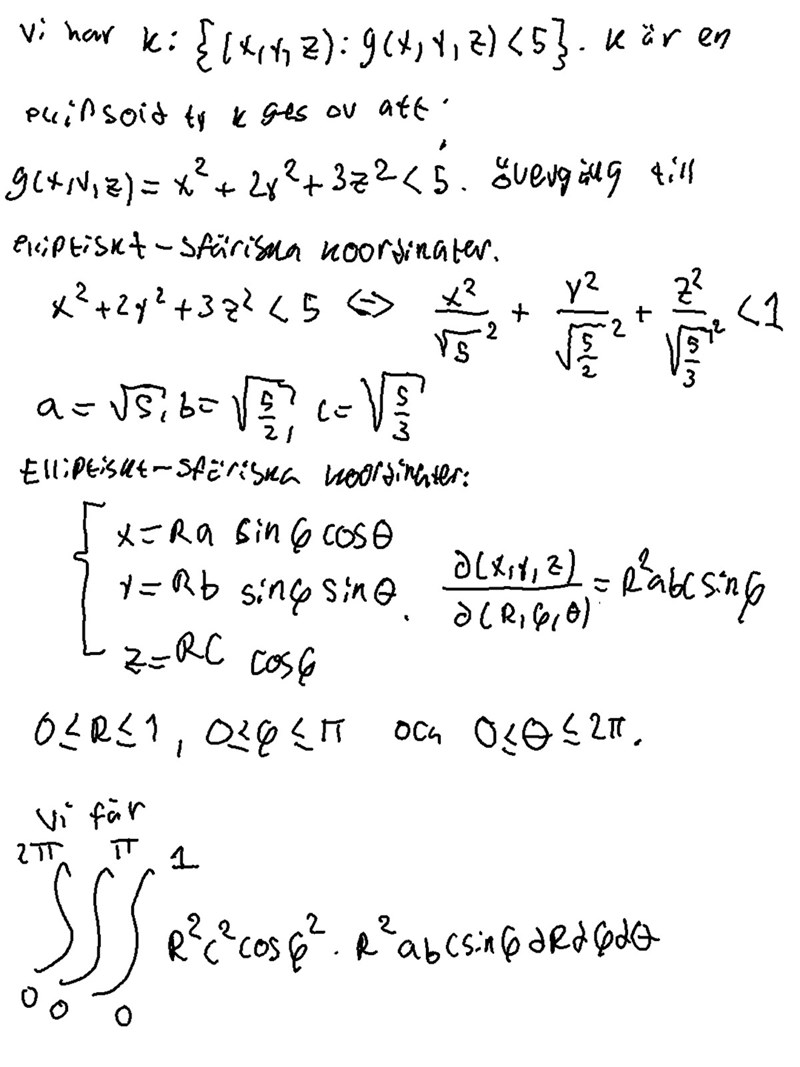 Vi har K: {(x,y,z): g(x,y,z) < 5}. K är en
ellipsoid ty K ges av att:
g(x,y,z) = x² + 2y² + 3z² < 5. Övergång till
elliptiskt-sfäriska koordinater.
x² + 2y² + 3z² < 5 ⇔ x²/√5² + y²/√(5/2)² + z²/√(5/3)² < 1
a = √5, b = √(5/2), c = √(5/3)
Elliptiskt-sfäriska koordinater:
x = Ra sinφ cosθ
y = Rb sinφ sinθ. ∂(x,y,z)/∂(R,φ,θ) = R²abc sinφ
z = Rc cosφ
0 ≤ R ≤ 1, 0 ≤ φ ≤ π och 0 ≤ θ ≤ 2π.
Vi får
∫₀^2π ∫₀^π ∫₀^1 R²c²cosφ² · R²abc sinφ dR dφ dθ